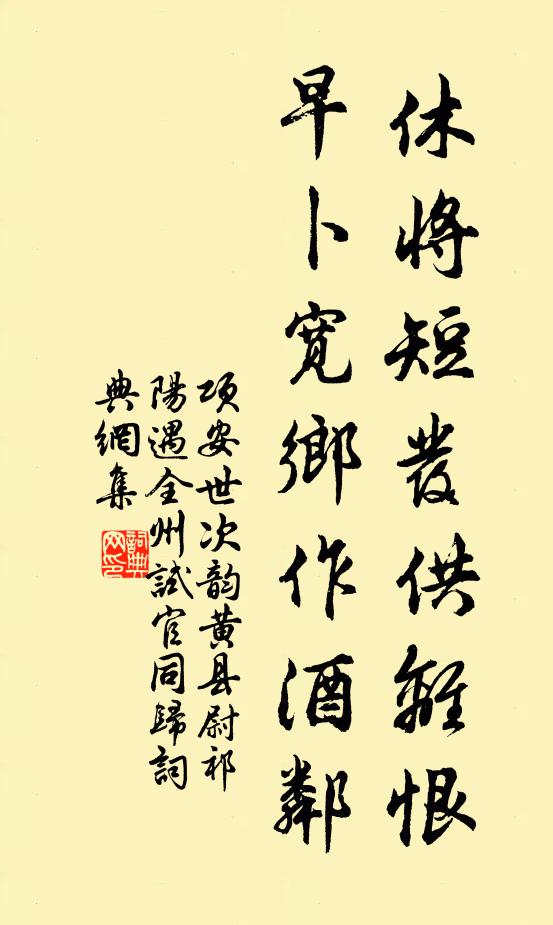 休將短發供離恨
早卜寬鄉作酒鄰
項安世次韵黄县尉祁
陽遇全州試官同歸詞
典網集
詞典
网印